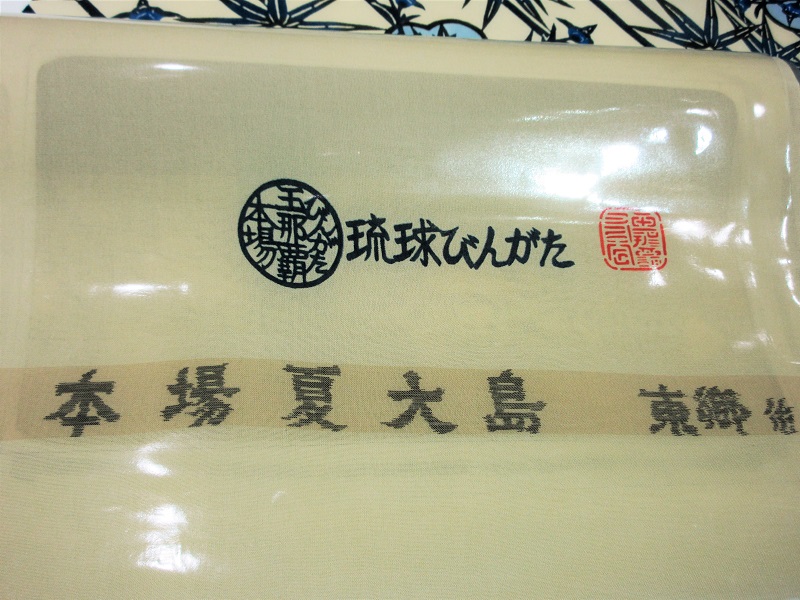 本場 玉那覇 びんがた
琉球びんがた
本場夏大島 東郷